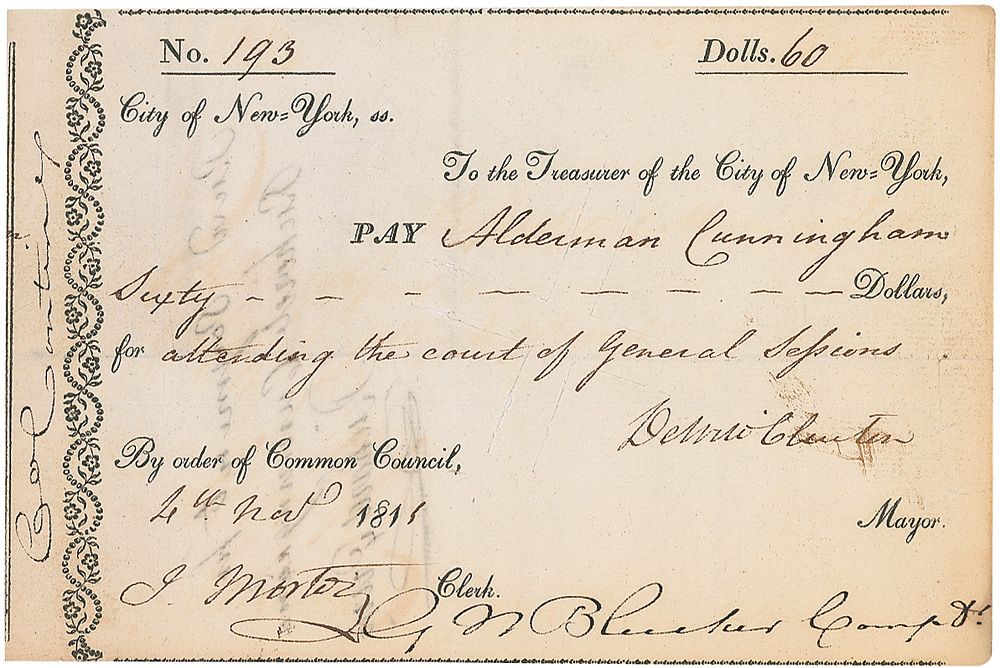 No. 193 Dolls. 60
City of New=York, ss.
To the Treasurer of the City of New=York,
PAY Alderman Cunningham
Sixty - - - - - - - - - Dollars,
for attending the court of General Sessions.
DeWitt Clinton
By order of Common Council,
4th Novr 1811
Mayor.
J. Morton Clerk.
G N Bleecker Comptr.